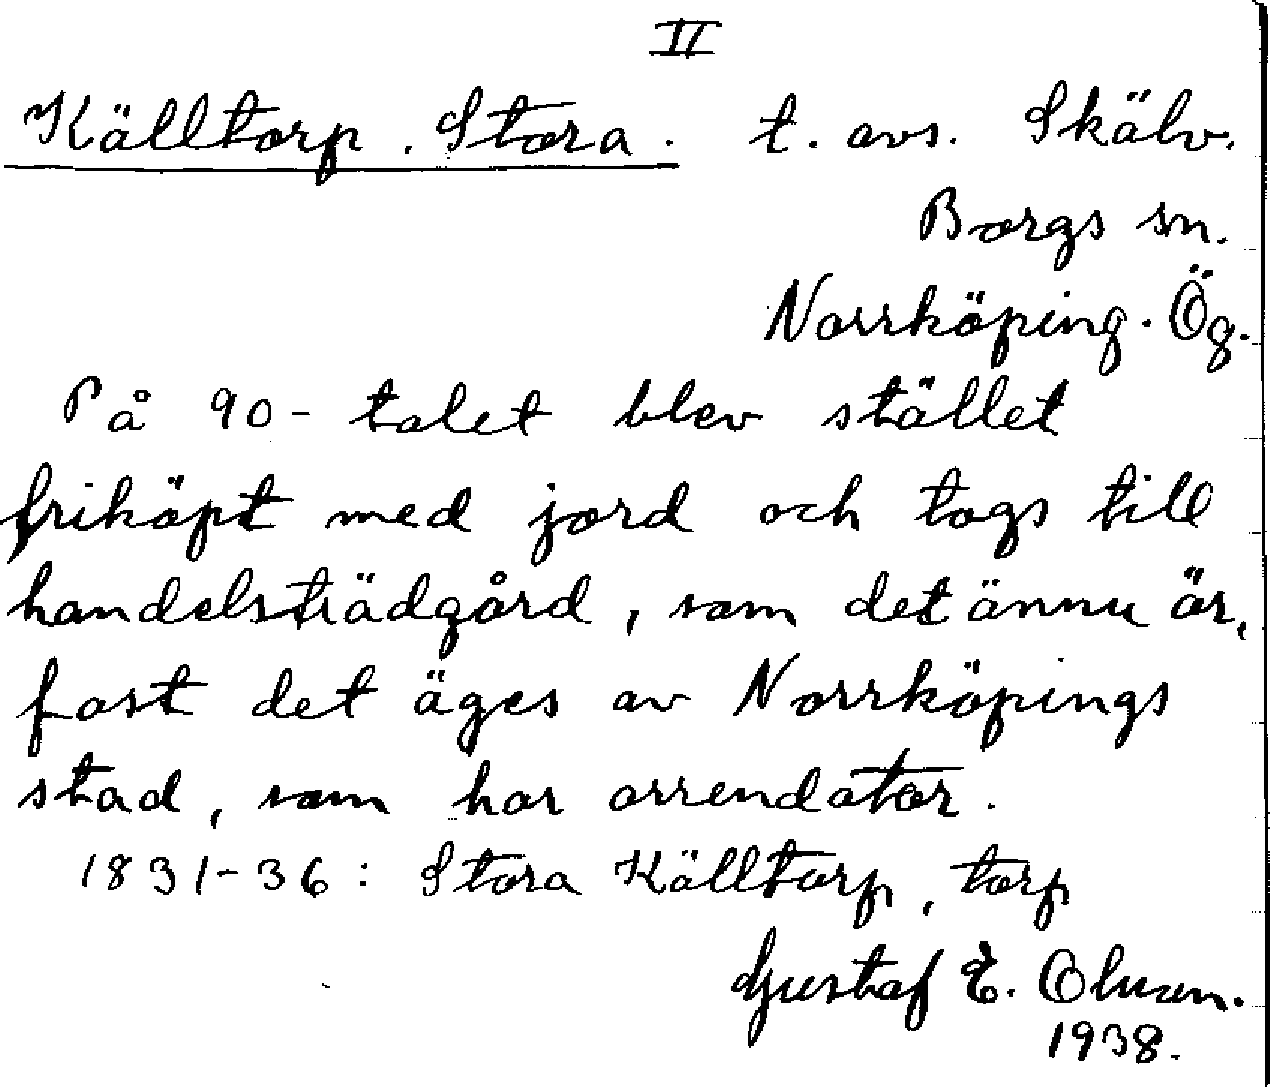 II
Källtorp. Stora. t. avs. Skälv.
Borgs sn.
Norrköping. Ög.
På 90-talet blev stället
friköpt med jord och togs till
handelsträdgård, som det ännu är,
fast det äges av Norrköpings
stad, som har arrendator.
1831-36: Stora Källtorp, torp
Gustaf E. Olsson.
1938.